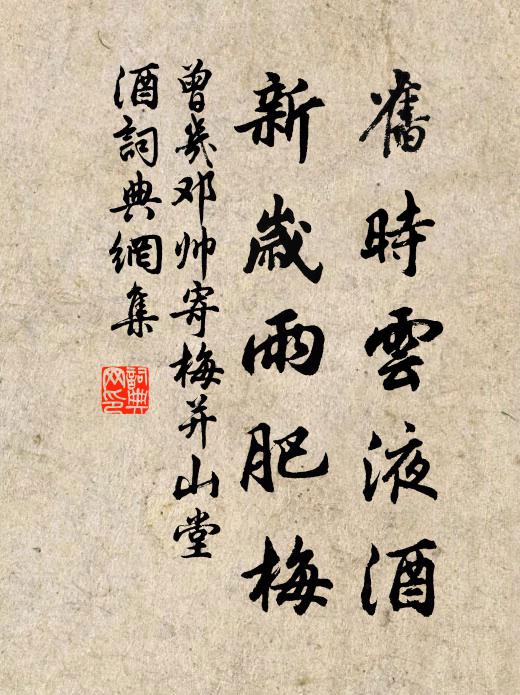 舊時雲液酒
新歲雨肥梅
曾幾邓帅寄梅并山堂
酒詞典網集
詞典
网印